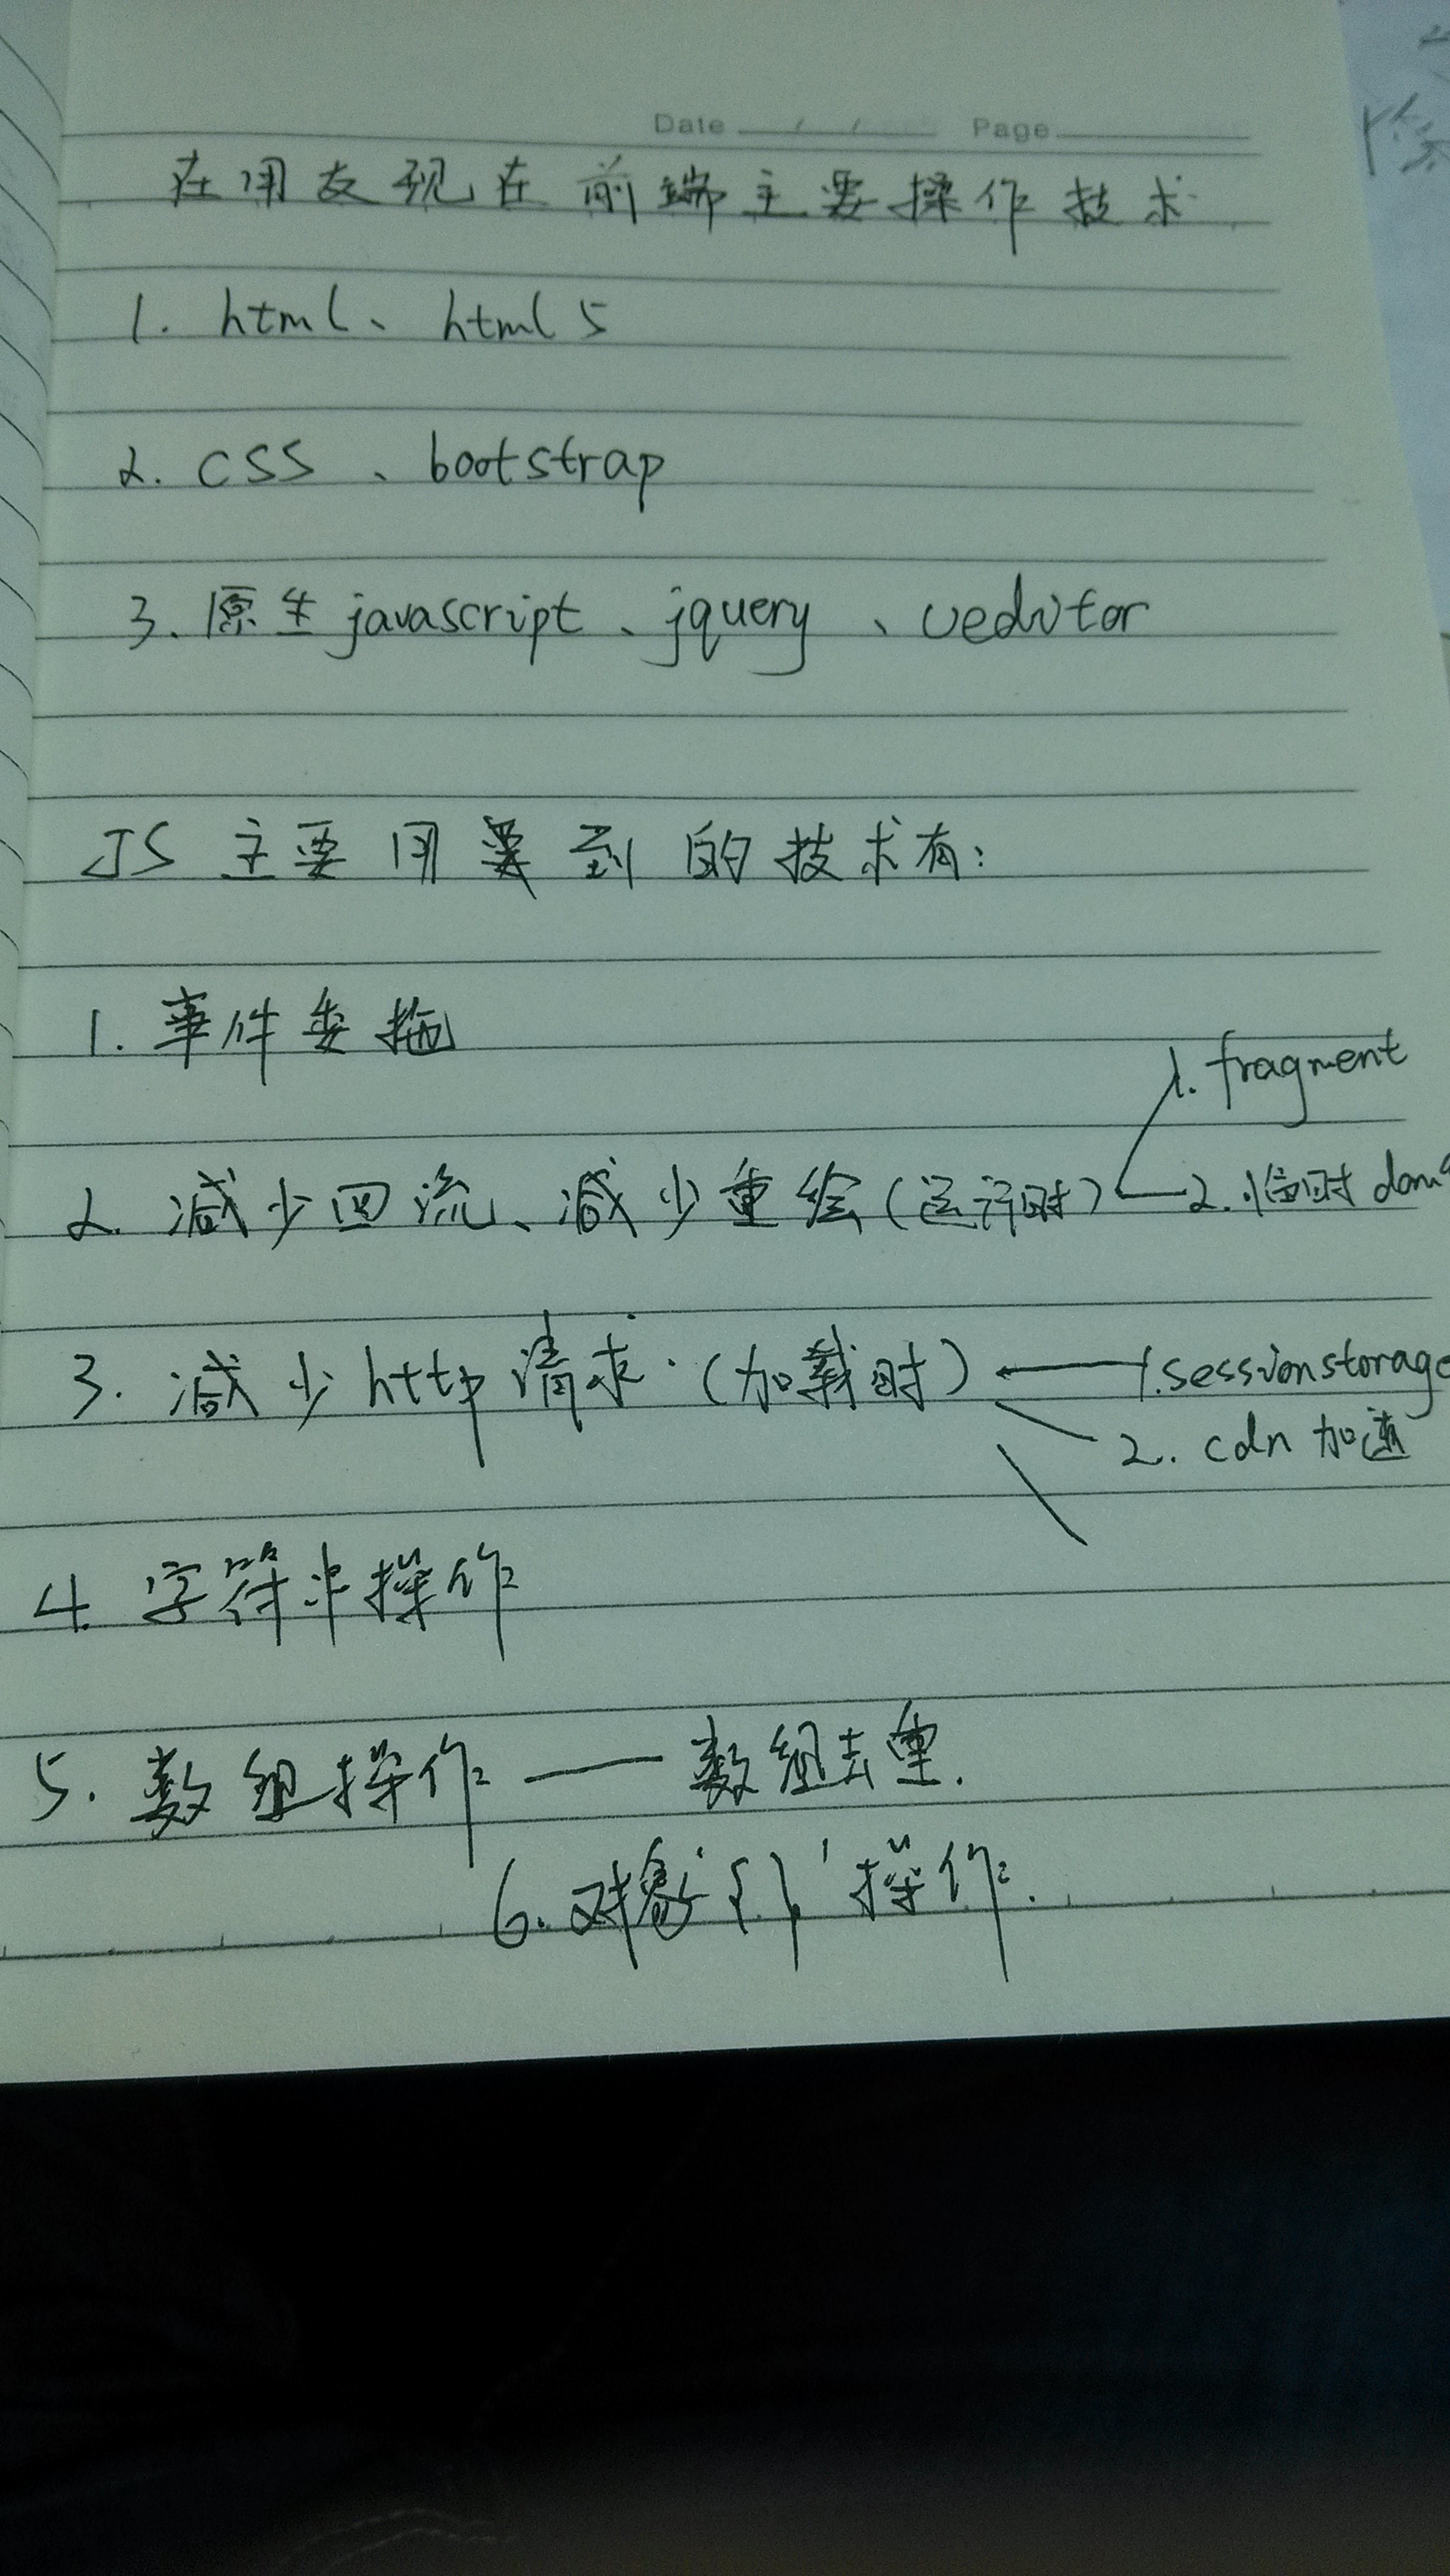 Date / / Page
在用友现在前端主要操作技术
1. html、html5
2. CSS、bootstrap
3. 原生javascript、jquery、ueditor
JS主要用到的技术有：
1. 事件委拖
1. fragment
2. 减少回流、减少重绘（运行时） 2. 临时dom
3. 减少http请求.（加载时） 1. sessionstorage
2. cdn加速
4. 字符串操作
5. 数组操作——数组去重.
6. 对象'{}'操作.